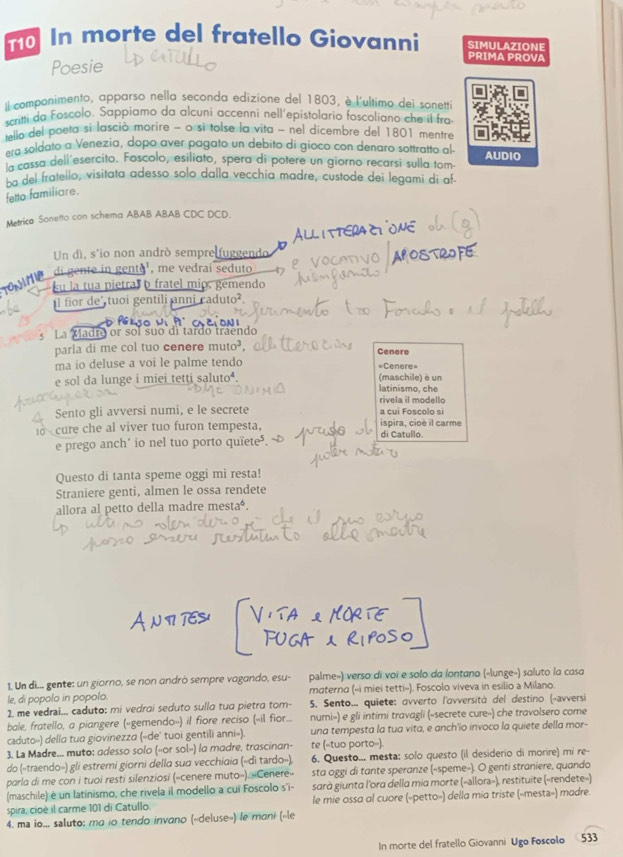 T10 In morte del fratello Giovanni
SIMULAZIONE
PRIMA PROVA
Poesie
CATULLO
Il componimento, apparso nella seconda edizione del 1803, è l'ultimo dei sonetti
scritti da Foscolo. Sappiamo da alcuni accenni nell'epistolario foscoliano che il fra-
tello del poeta si lasciò morire – o si tolse la vita – nel dicembre del 1801 mentre
era soldato a Venezia, dopo aver pagato un debito di gioco con denaro sottratto al-
la cassa dell'esercito. Foscolo, esiliato, spera di potere un giorno recarsi sulla tom-
ba del fratello, visitata adesso solo dalla vecchia madre, custode dei legami di af-
fetto familiare.
AUDIO
Metrica Sonetto con schema ABAB ABAB CDC DCD.
ALLITTERAZIONE di (g)
Un dì, s'io non andrò sempre fuggendo
e VOCATIVO / APOSTROFE
di gente in gente¹, me vedrai seduto
su la tua pietra, o fratel mio, gemendo
il fior de' tuoi gentili anni caduto².
riferimento tra Foscolo e il fratello
5 La Madre or sol suo dì tardo traendo
parla di me col tuo cenere muto³,
allitterazione
ma io deluse a voi le palme tendo
e sol da lunge i miei tetti saluto⁴.
Cenere
«Cenere»
(maschile) è un
latinismo, che
rivela il modello
a cui Foscolo si
ispira, cioè il carme
di Catullo.
Sento gli avversi numi, e le secrete
10 cure che al viver tuo furon tempesta,
e prego anch' io nel tuo porto quïete⁵.
prego di
poter morire
Questo di tanta speme oggi mi resta!
Straniere genti, almen le ossa rendete
allora al petto della madre mesta⁶.
ultimo desiderio: che il suo corpo
possa essere restituito alla madre
ANTITESI [VITA e MORTE
FUGA e RIPOSO]
1. Un dì... gente: un giorno, se non andrò sempre vagando, esu-
le, di popolo in popolo.
2. me vedrai... caduto: mi vedrai seduto sulla tua pietra tom-
bale, fratello, a piangere («gemendo») il fiore reciso («il fior...
caduto») della tua giovinezza («de' tuoi gentili anni»).
3. La Madre... muto: adesso solo («or sol») la madre, trascinan-
do («traendo») gli estremi giorni della sua vecchiaia («dì tardo»),
parla di me con i tuoi resti silenziosi («cenere muto»). «Cenere»
(maschile) è un latinismo, che rivela il modello a cui Foscolo s'i-
spira, cioè il carme 101 di Catullo.
4. ma io... saluto: ma io tendo invano («deluse») le mani («le
palme») verso di voi e solo da lontano («lunge») saluto la casa
materna («i miei tetti»). Foscolo viveva in esilio a Milano.
5. Sento... quiete: avverto l'avversità del destino («avversi
numi») e gli intimi travagli («secrete cure») che travolsero come
una tempesta la tua vita, e anch'io invoco la quiete della mor-
te («tuo porto»).
6. Questo... mesta: solo questo (il desiderio di morire) mi re-
sta oggi di tante speranze («speme»). O genti straniere, quando
sarà giunta l'ora della mia morte («allora»), restituite («rendete»)
le mie ossa al cuore («petto») della mia triste («mesta») madre.
In morte del fratello Giovanni Ugo Foscolo 533